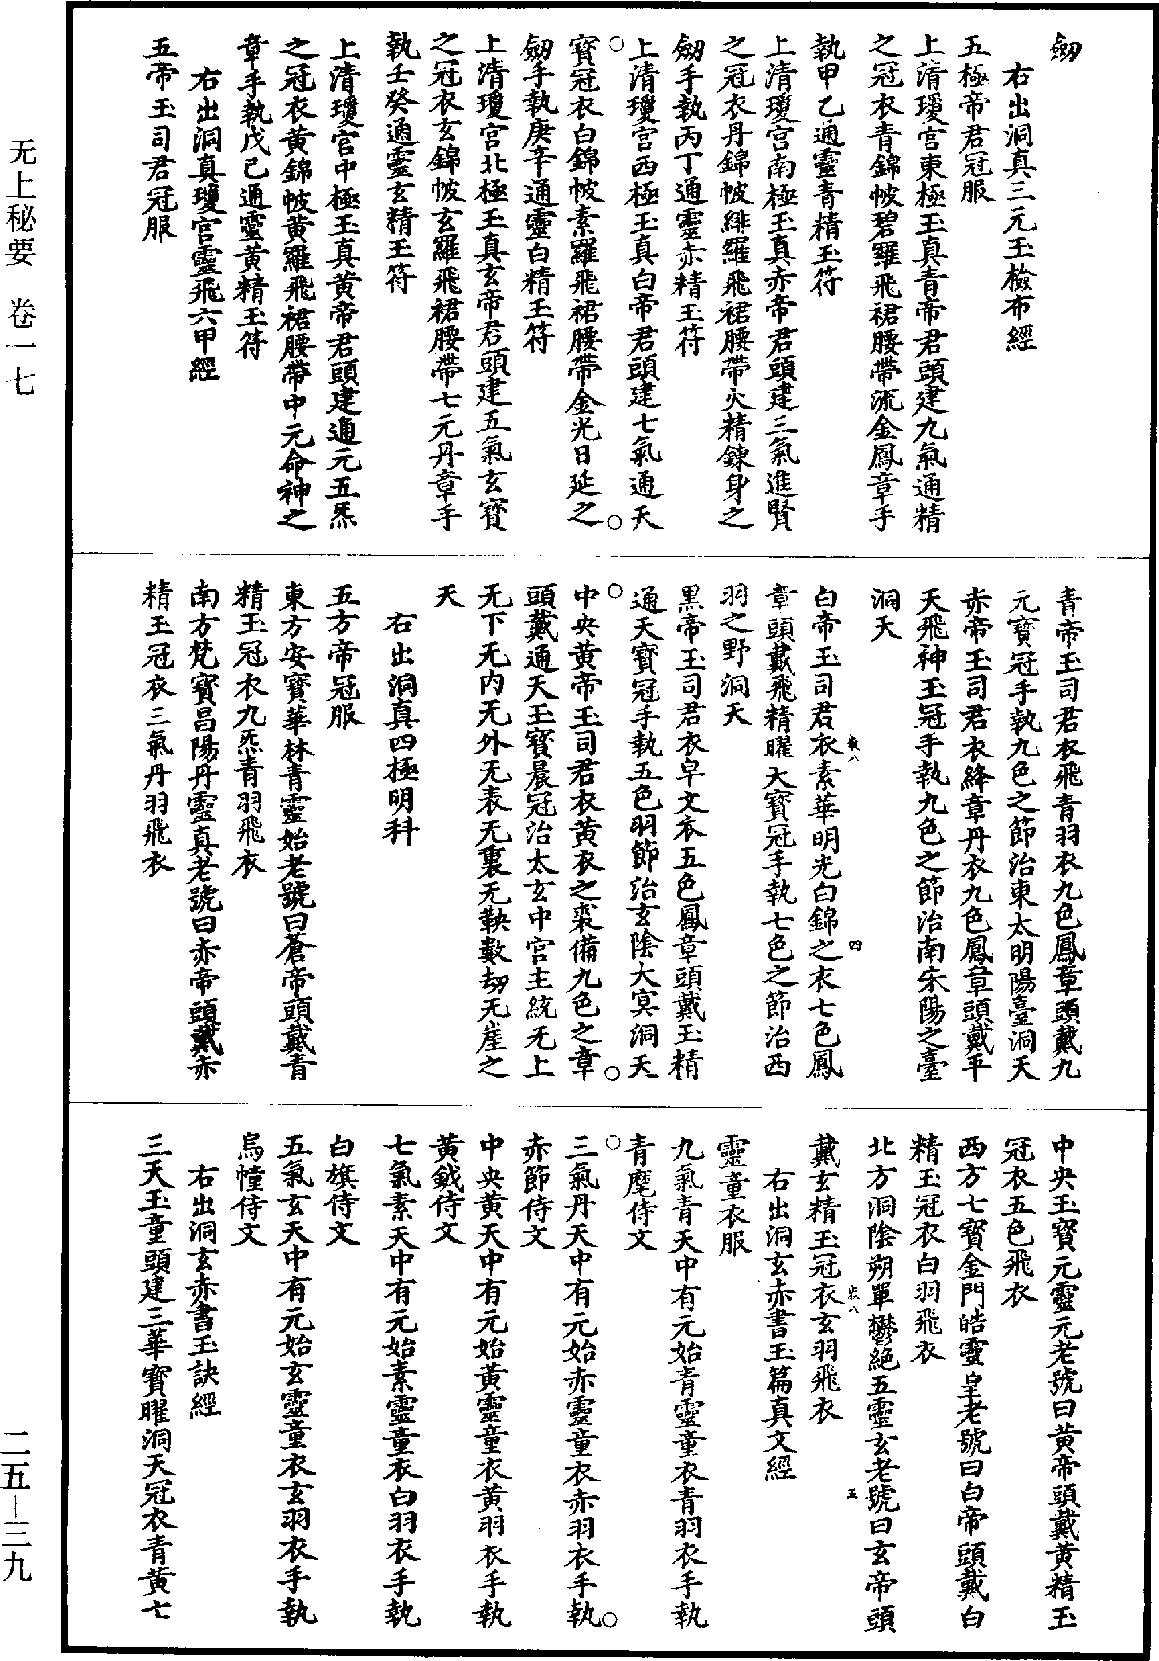 劒
右出洞真三元玉檢布經
五極帝君冠服
上清瓊宮東極玉真青帝君頭建九氣通精
之冠衣青錦帔碧羅飛裙腰帶流金鳳章手
執甲乙通靈青精玉符
上清瓊宮南極玉真赤帝君頭建三氣進賢
之冠衣丹錦帔緋羅飛裙腰帶火精鍊身之
劒手執丙丁通靈赤精玉符
上清瓊宮西極玉真白帝君頭建七氣通天
寶冠衣白錦帔素羅飛裙腰帶金光日延之
劒手執庚辛通靈白精玉符
上清瓊宮北極玉真玄帝君頭建五氣玄寶
之冠衣玄錦帔玄羅飛裙腰帶七元丹章手
執壬癸通靈玄精玉符
上清瓊宮中極玉真黃帝君頭建通元五炁
之冠衣黃錦帔黃羅飛裙腰帶中元命神之
章手執戊己通靈黃精玉符
右出洞真瓊宮靈飛六甲經
五帝玉司君冠服
青帝玉司君衣飛青羽衣九色鳳章頭戴九
元寶冠手執九色之節治東太明陽臺洞天
赤帝玉司君衣絳章丹衣九色鳳章頭戴平
天飛神玉冠手執九色之節治南宋陽之臺
洞天
白帝玉司君衣素華明光白錦之衣七色鳳
章頭戴飛精曜天寶冠手執七色之節治西
羽之野洞天
黑帝玉司君衣皁文衣五色鳳章頭戴玉精
通天寶冠手執五色羽節治玄陰大冥洞天
中央黃帝玉司君衣黃衣之裘備九色之章
頭戴通天玉寶晨冠治太玄中宮主統无上
无下无內无外无表无裏无鞅數劫无崖之
天
右出洞真四極明科
五方帝冠服
東方安寶華林青靈始老號曰蒼帝頭戴青
精玉冠衣九炁青羽飛衣
南方梵寶昌陽丹靈真老號曰赤帝頭戴赤
精玉冠衣三氣丹羽飛衣
中央玉寶元靈元老號曰黃帝頭戴黃精玉
冠衣五色飛衣
西方七寶金門皓靈皇老號曰白帝頭戴白
精玉冠衣白羽飛衣
北方洞陰朔單鬱絕五靈玄老號曰玄帝頭
戴玄精玉冠衣玄羽飛衣
右出洞玄赤書玉篇真文經
靈童衣服
九氣青天中有元始青靈童衣青羽衣手執
青麾侍文
三氣丹天中有元始赤靈童衣赤羽衣手執
赤節侍文
中央黃天中有元始黃靈童衣黃羽衣手執
黃鉞侍文
七氣素天中有元始素靈童衣白羽衣手執
白旗侍文
五氣玄天中有元始玄靈童衣玄羽衣手執
烏幢侍文
右出洞玄赤書玉訣經
三天玉童頭建三華寶曜洞天冠衣青黃七
无上秘要　卷一七
二五—三九